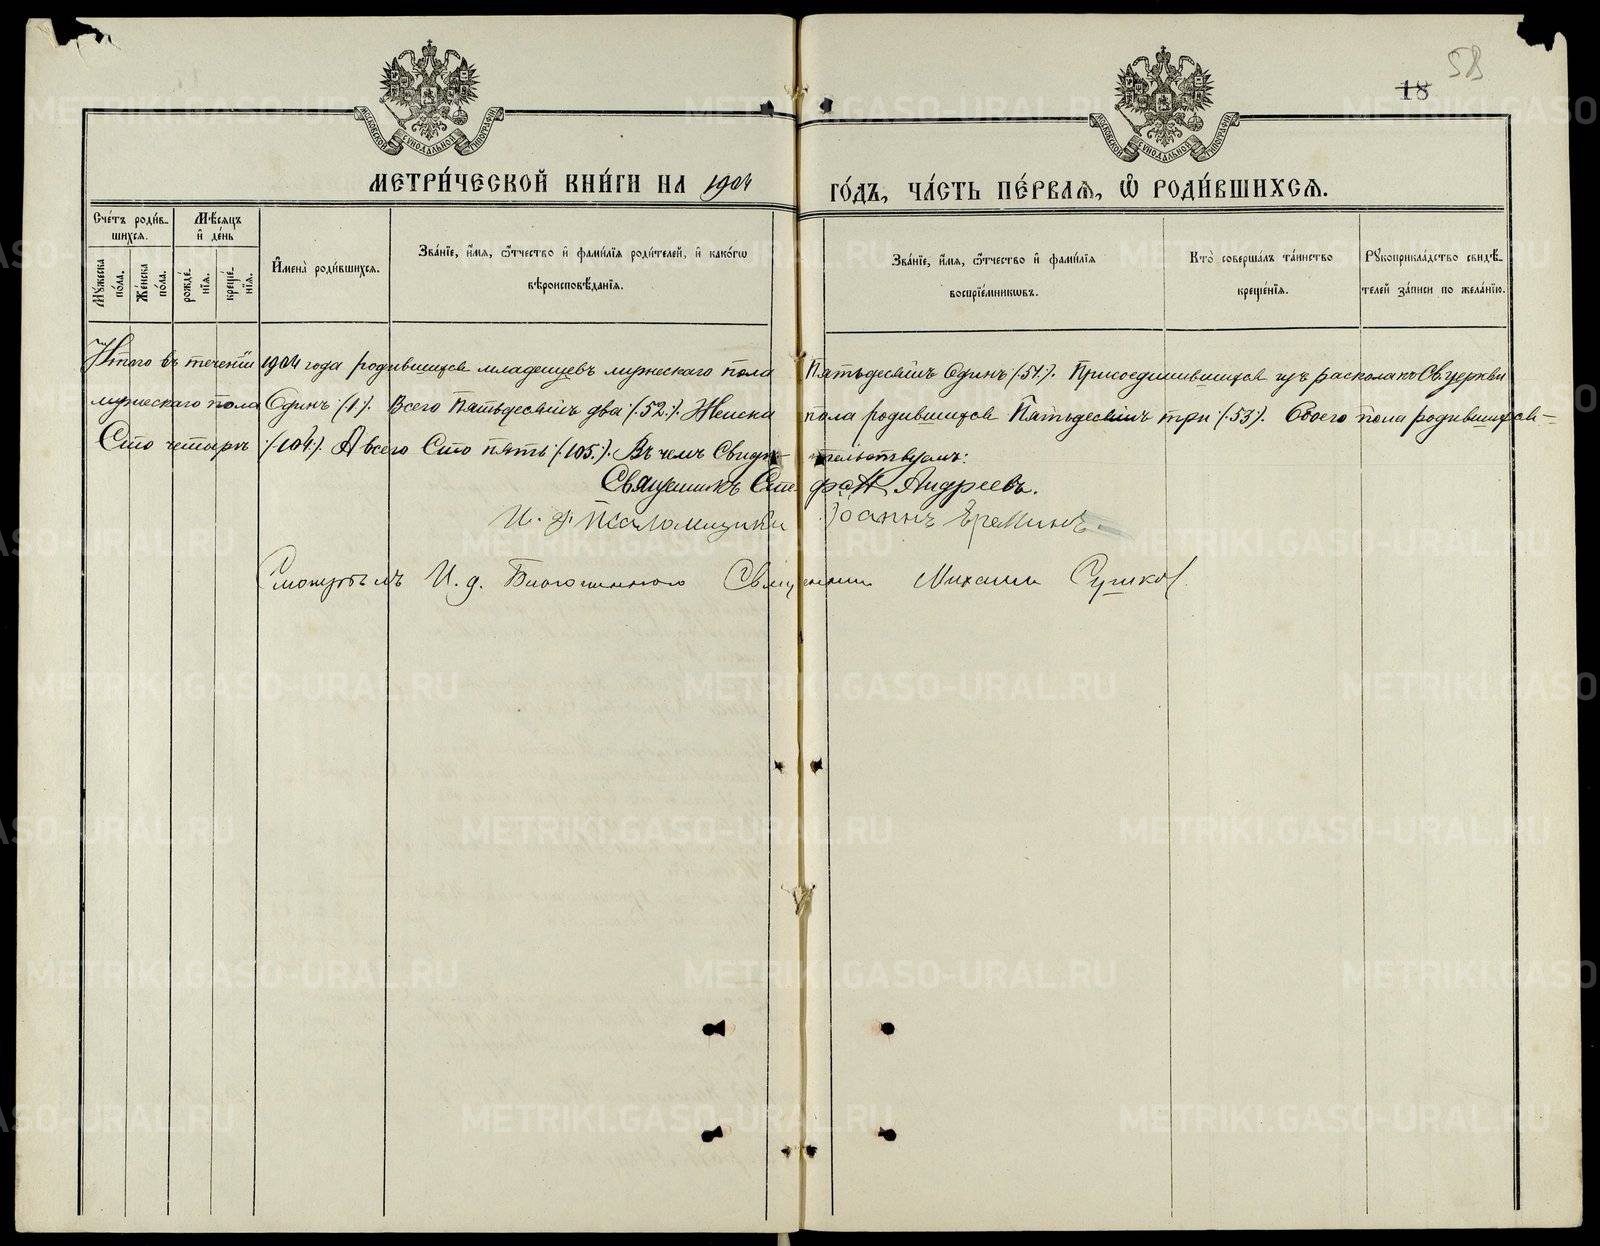 58
18
МОСКОВСКОЙ СѴНОДАЛЬНОЙ ТИПОГРАФІИ
МОСКОВСКОЙ СѴНОДАЛЬНОЙ ТИПОГРАФІИ
МЕТРИ́ЧЕСКОЙ КНИ́ГИ НА 1904 ГО́ДЪ, ЧА́СТЬ ПЕ́РВАЯ, Ѽ РОДИ́ВШИХСЯ.
Сче́тъ роди́вшихся.
Му́жеска по́ла.
Же́нска по́ла.
Мѣ́сяцъ и҆ де́нь
рожде́нїѧ.
креще́нїѧ.
И҆мена̀ роди́вшихся.
Зва́нїе, и҆́мя, ѻ҆́тчество и҆ фами́лїя роди́телей, и҆ како́гѡ вѣроисповѣ́данїя.
Зва́нїе, и҆́мя, ѻ҆́тчество и҆ фами́лїя воспрїе́мникѡвъ.
Кто̀ соверша́лъ та́инство креще́нїя.
Рꙋкоприкла́дство свидѣ́телей за́писи по жела́нїю.
Итого въ теченіи 1904 года родившихся младенцевъ мужескаго пола Пятьдесятъ Одинъ (:51:). Присоединившихся изъ раскола къ Св. церкви
мужескаго пола Одинъ (:1:). Всего Пятьдесятъ два (:52:). Женска пола родившихся Пятьдесятъ три (:53:). Обоего пола родившихся
Сто четыре (:104:). А всего Сто пять (:105:). Въ чемъ Свидѣтельствуемъ:
Священникъ Стефанъ Андреевъ.
И. д. Псаломщика Іоаннъ Ереминъ.
И. д. Благочиннаго Священникъ Михаилъ Сушковъ
METRIKI.GASO-URAL.RU